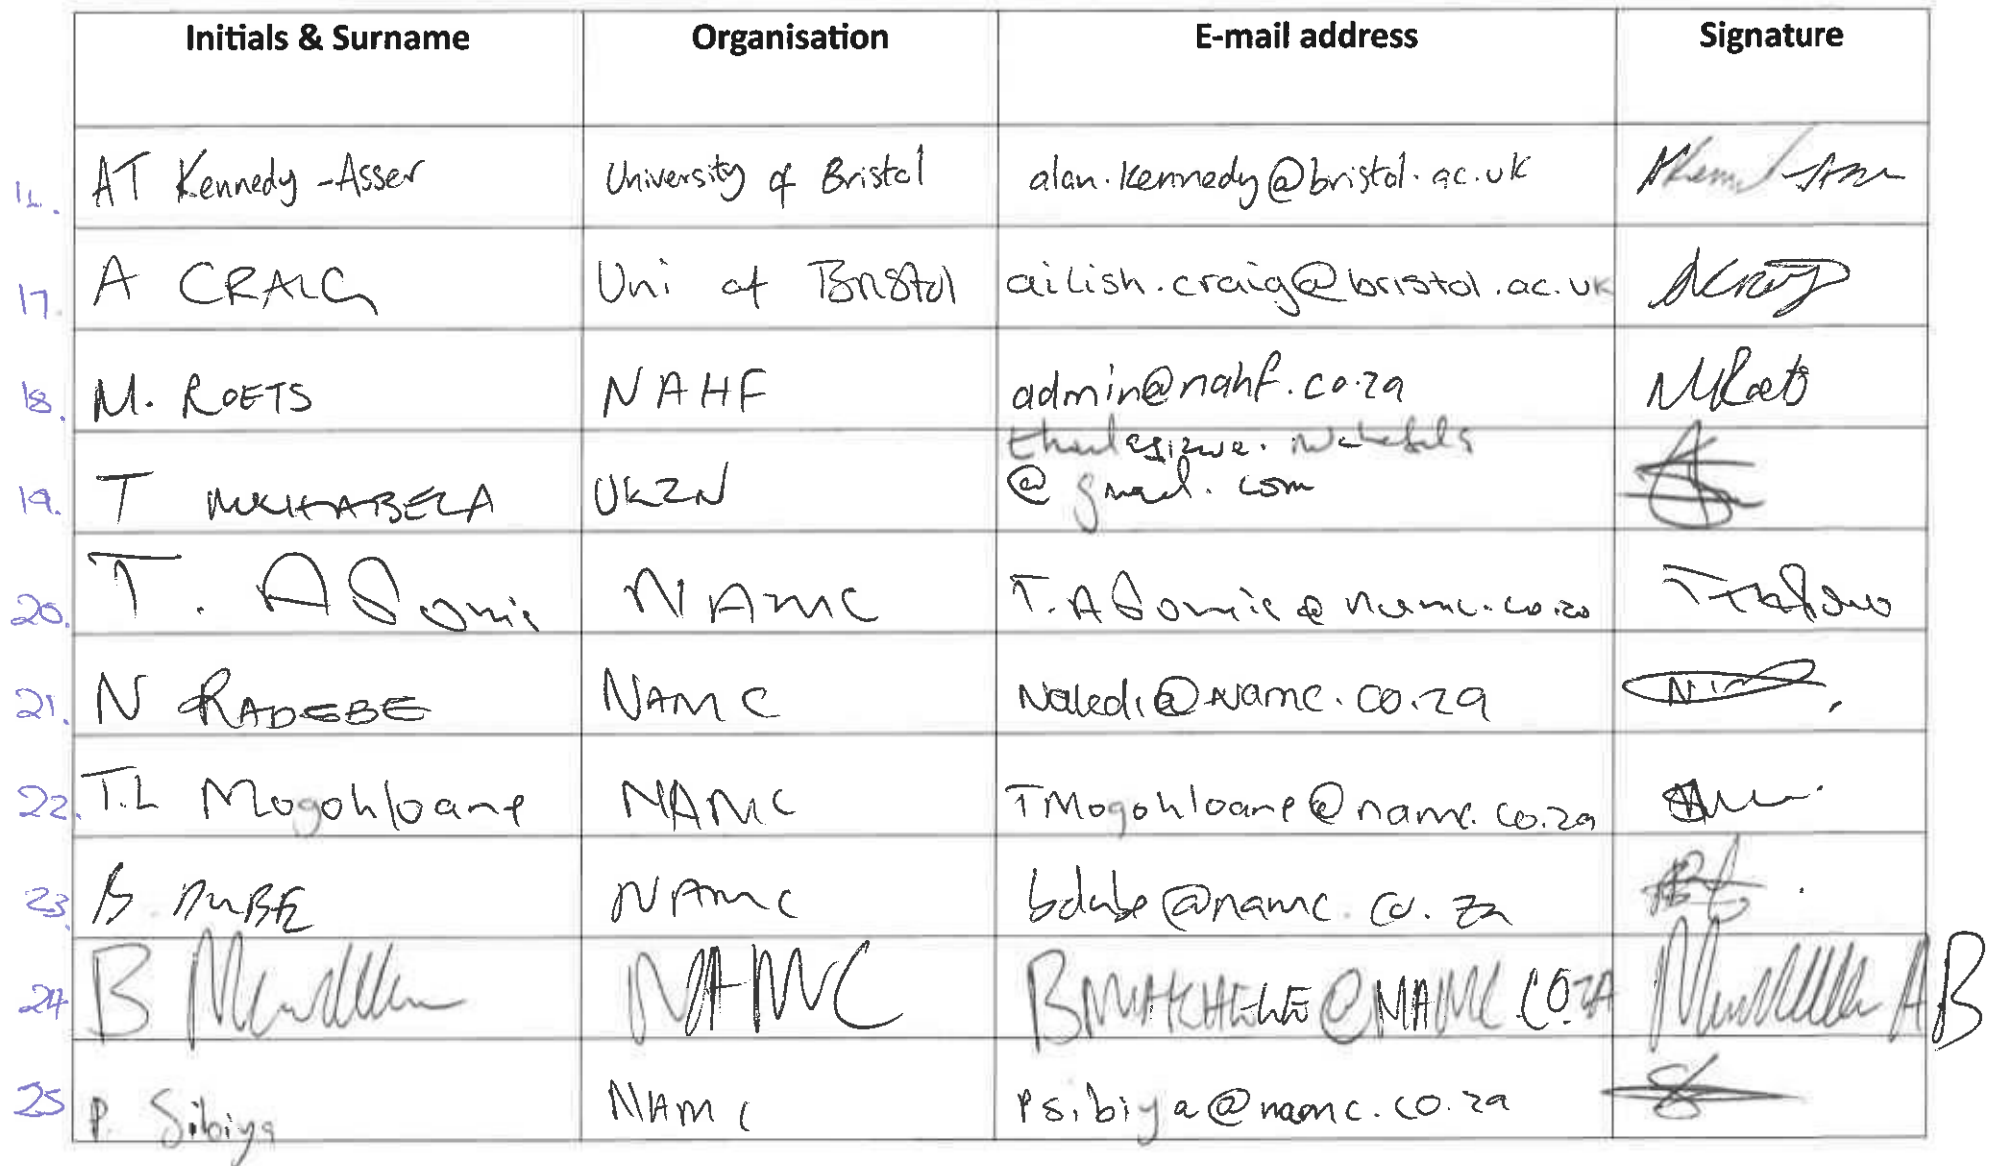 Initials & Surname Organisation E-mail address Signature
AT Kennedy-Asser University of Bristol alan.kennedy@bristol.ac.uk
17. A CRAIG Uni of Bristol ailish.craig@bristol.ac.uk ACraig
18. M. ROETS NAHF admin@nahf.co.za MRoets
19. T MKHABELA UKZN
@gmail.com
20. T. NAMC
21. N RADEBE NAMC Naledi@Namc.co.za
22. T.L Mogohloane NAMC TMogohloane@namc.co.za
23 B. DUBE NAMC bdube@namc.co.za
24 B NAMC
25 P. Sibiya NAMC Psibiya@namc.co.za